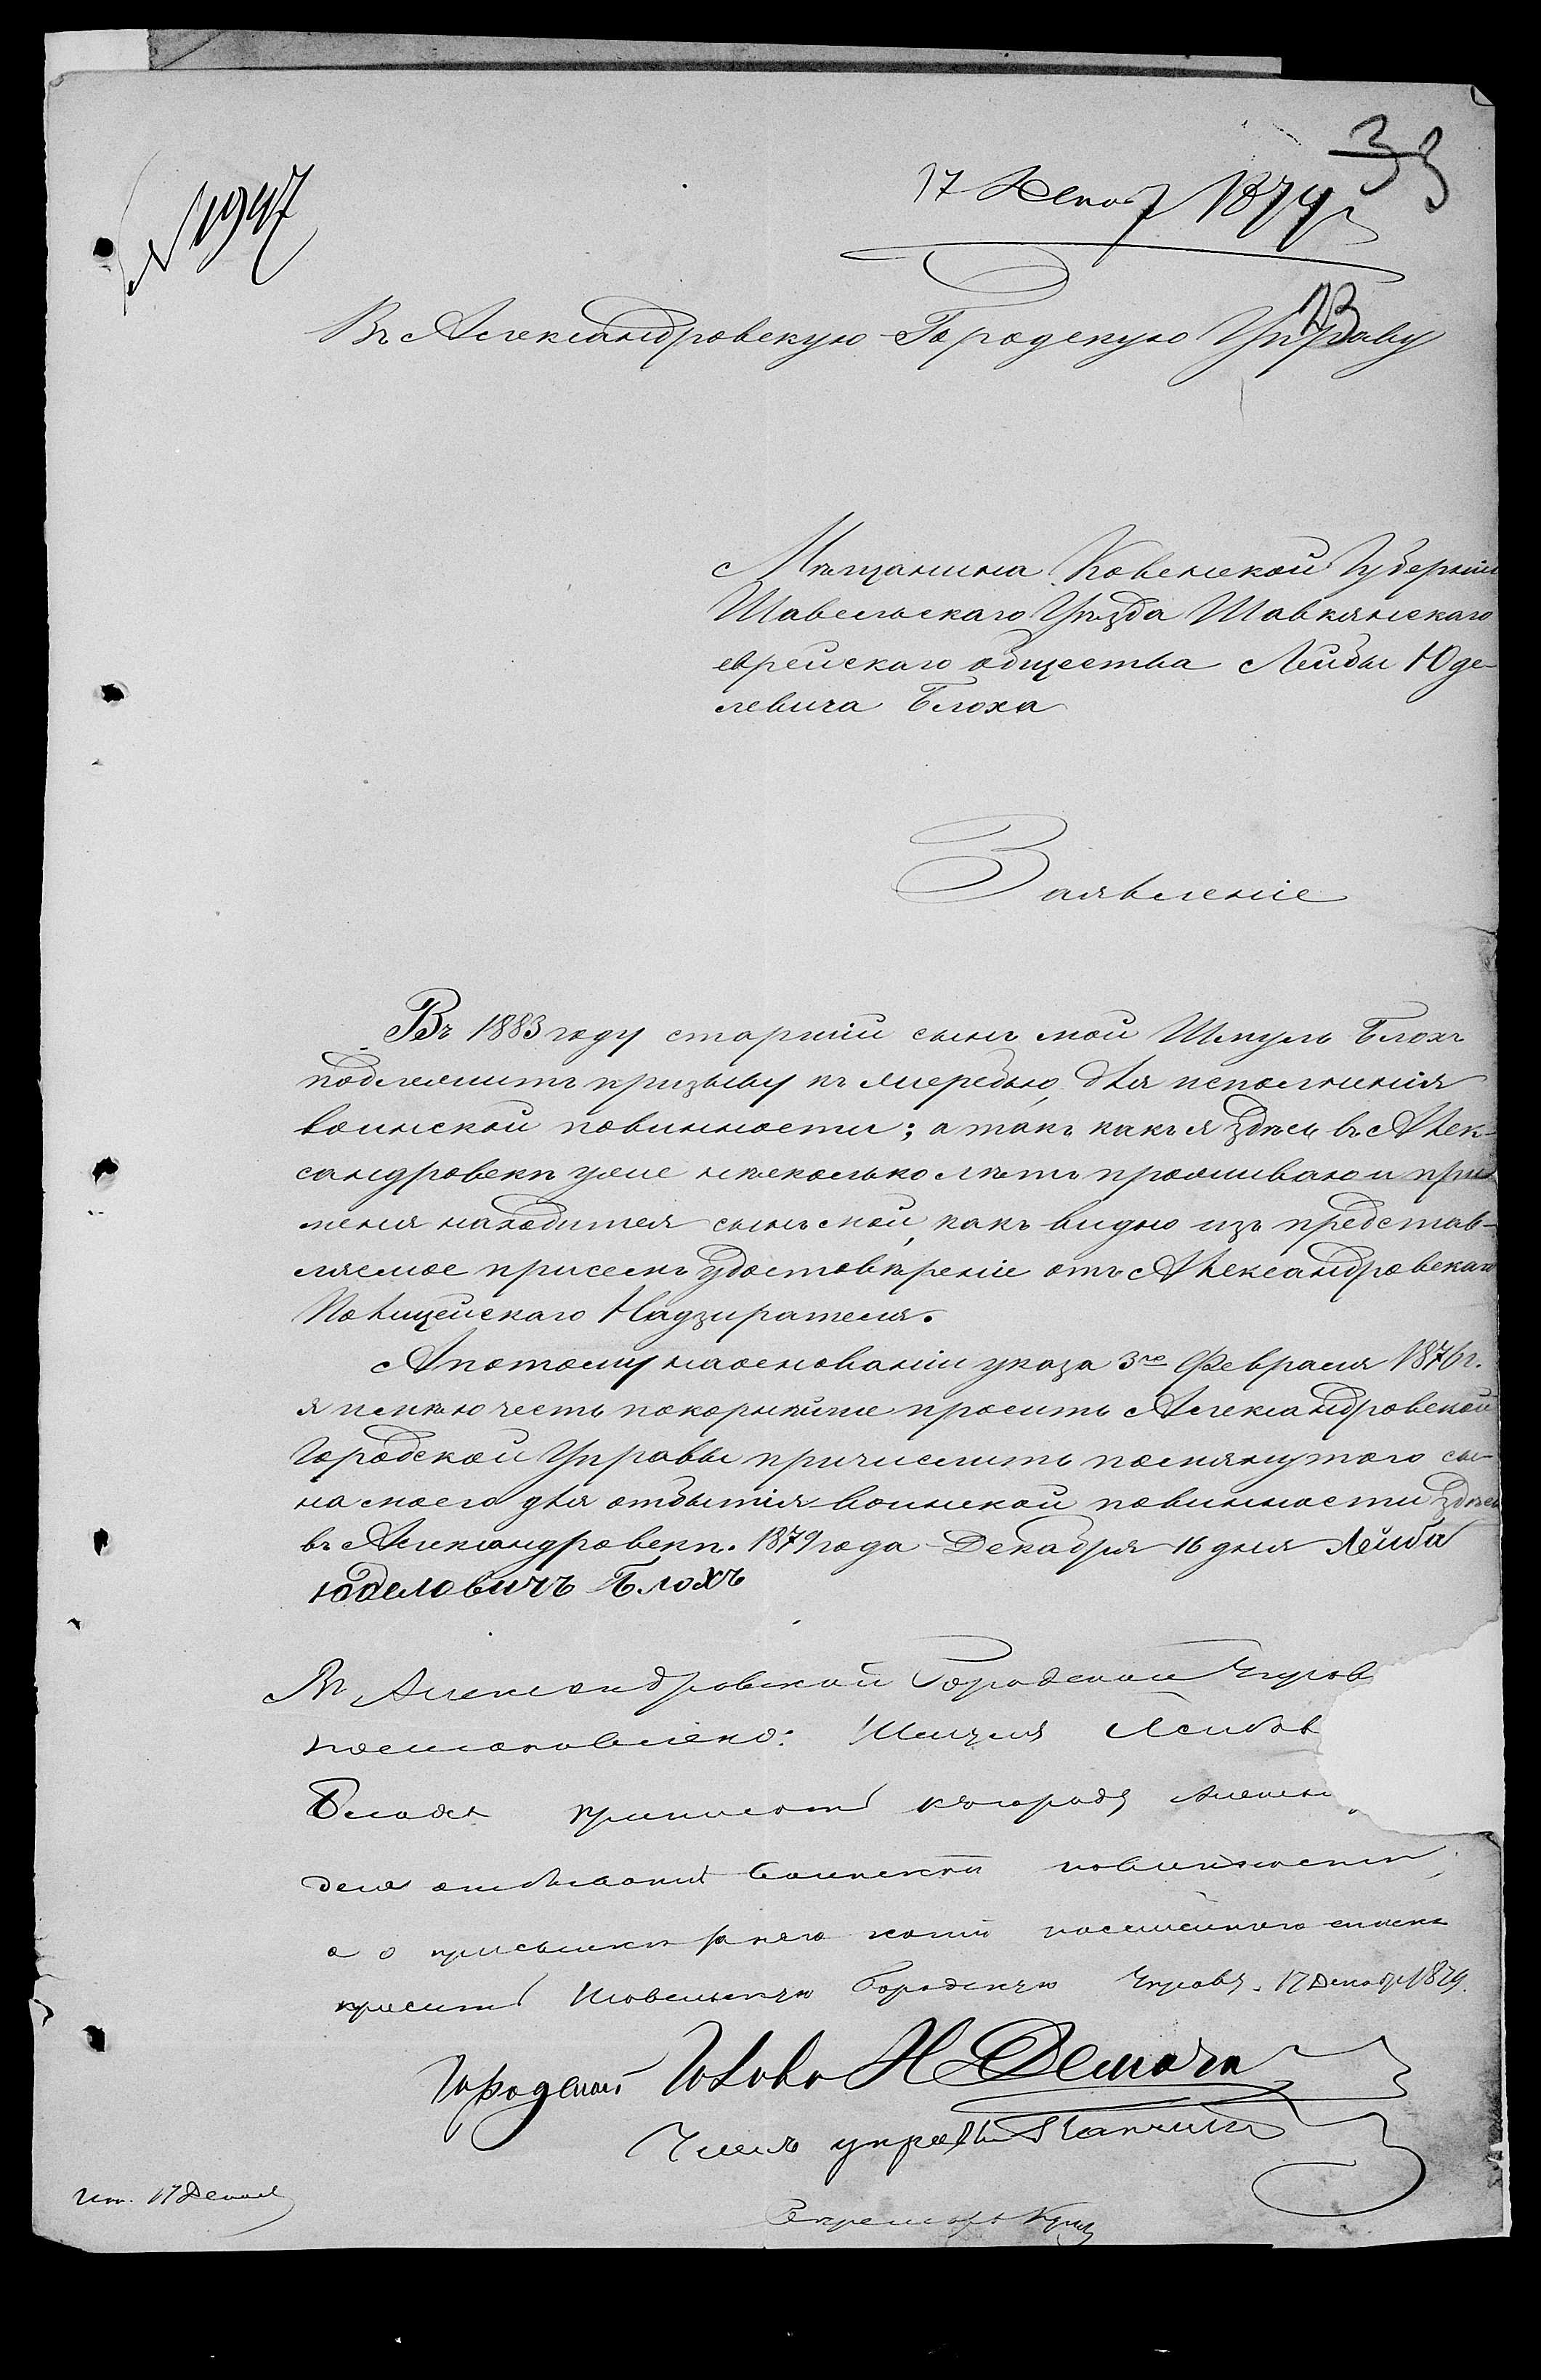 39
17 Декаб 1879 г
№ 1947
23
Въ Александровскую Городскую Управу
Мѣщанина Ковенской Губерніи
Шавельскаго Уѣзда Шавкянскаго
еврейскаго общества Лейбы Юде-
левича Блоха
Заявленіе
Въ 1883 году старшій сынъ мой Шмуль Блохъ
подлежитъ призыву къ жеребью, для исполненія
воинской повинности; а такъ какъ я здѣсь въ Алек-
сандровскѣ уже нѣсколько лѣтъ проживаю и при
меня находится сынъ мой, какъ видно изъ представ-
ляемое присемъ удостовѣреніе отъ Александровскаго
Полицейскаго Надзирателя.
А потому на основаніи указа 3го Февраля 1876 г.
я имѣю честь покорнѣйше просить Александровской
Городской Управы причислить помянутого сы-
на моего для отбытія воинской повинности здѣсь
въ Александровскѣ. 1879 года Декабря 16 дня Лейба
Юделовичъ Блохъ
Въ Александровской Городской Управ
постановлено: Шмуля Лейбов
Блоха приписать къ городу Алекса
для отбыванія воинской повинности,
а о присылкѣ о него копіи посемейного списка
просить Шавельскую Городскую Управу. 17 Декабр 1879.
Городской Голова Н Демоча
Членъ управы
Секретарь
Исп. 17 Декаб